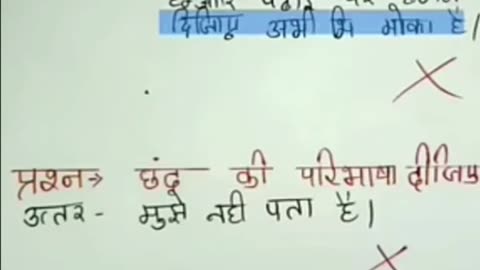 दिजिए अभी भि मोका है।
प्रश्न→ छंद की परिभाषा दीजिए
उत्तर - मुझे नही पता है।